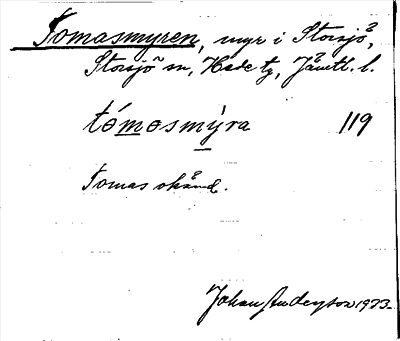 Tomasmyren, myr i Storsjö,
Storsjö sn, Hede tg, Jämtl. l.
tómosmỳra 119
Tomas okänd.
Johan Anderson 1933